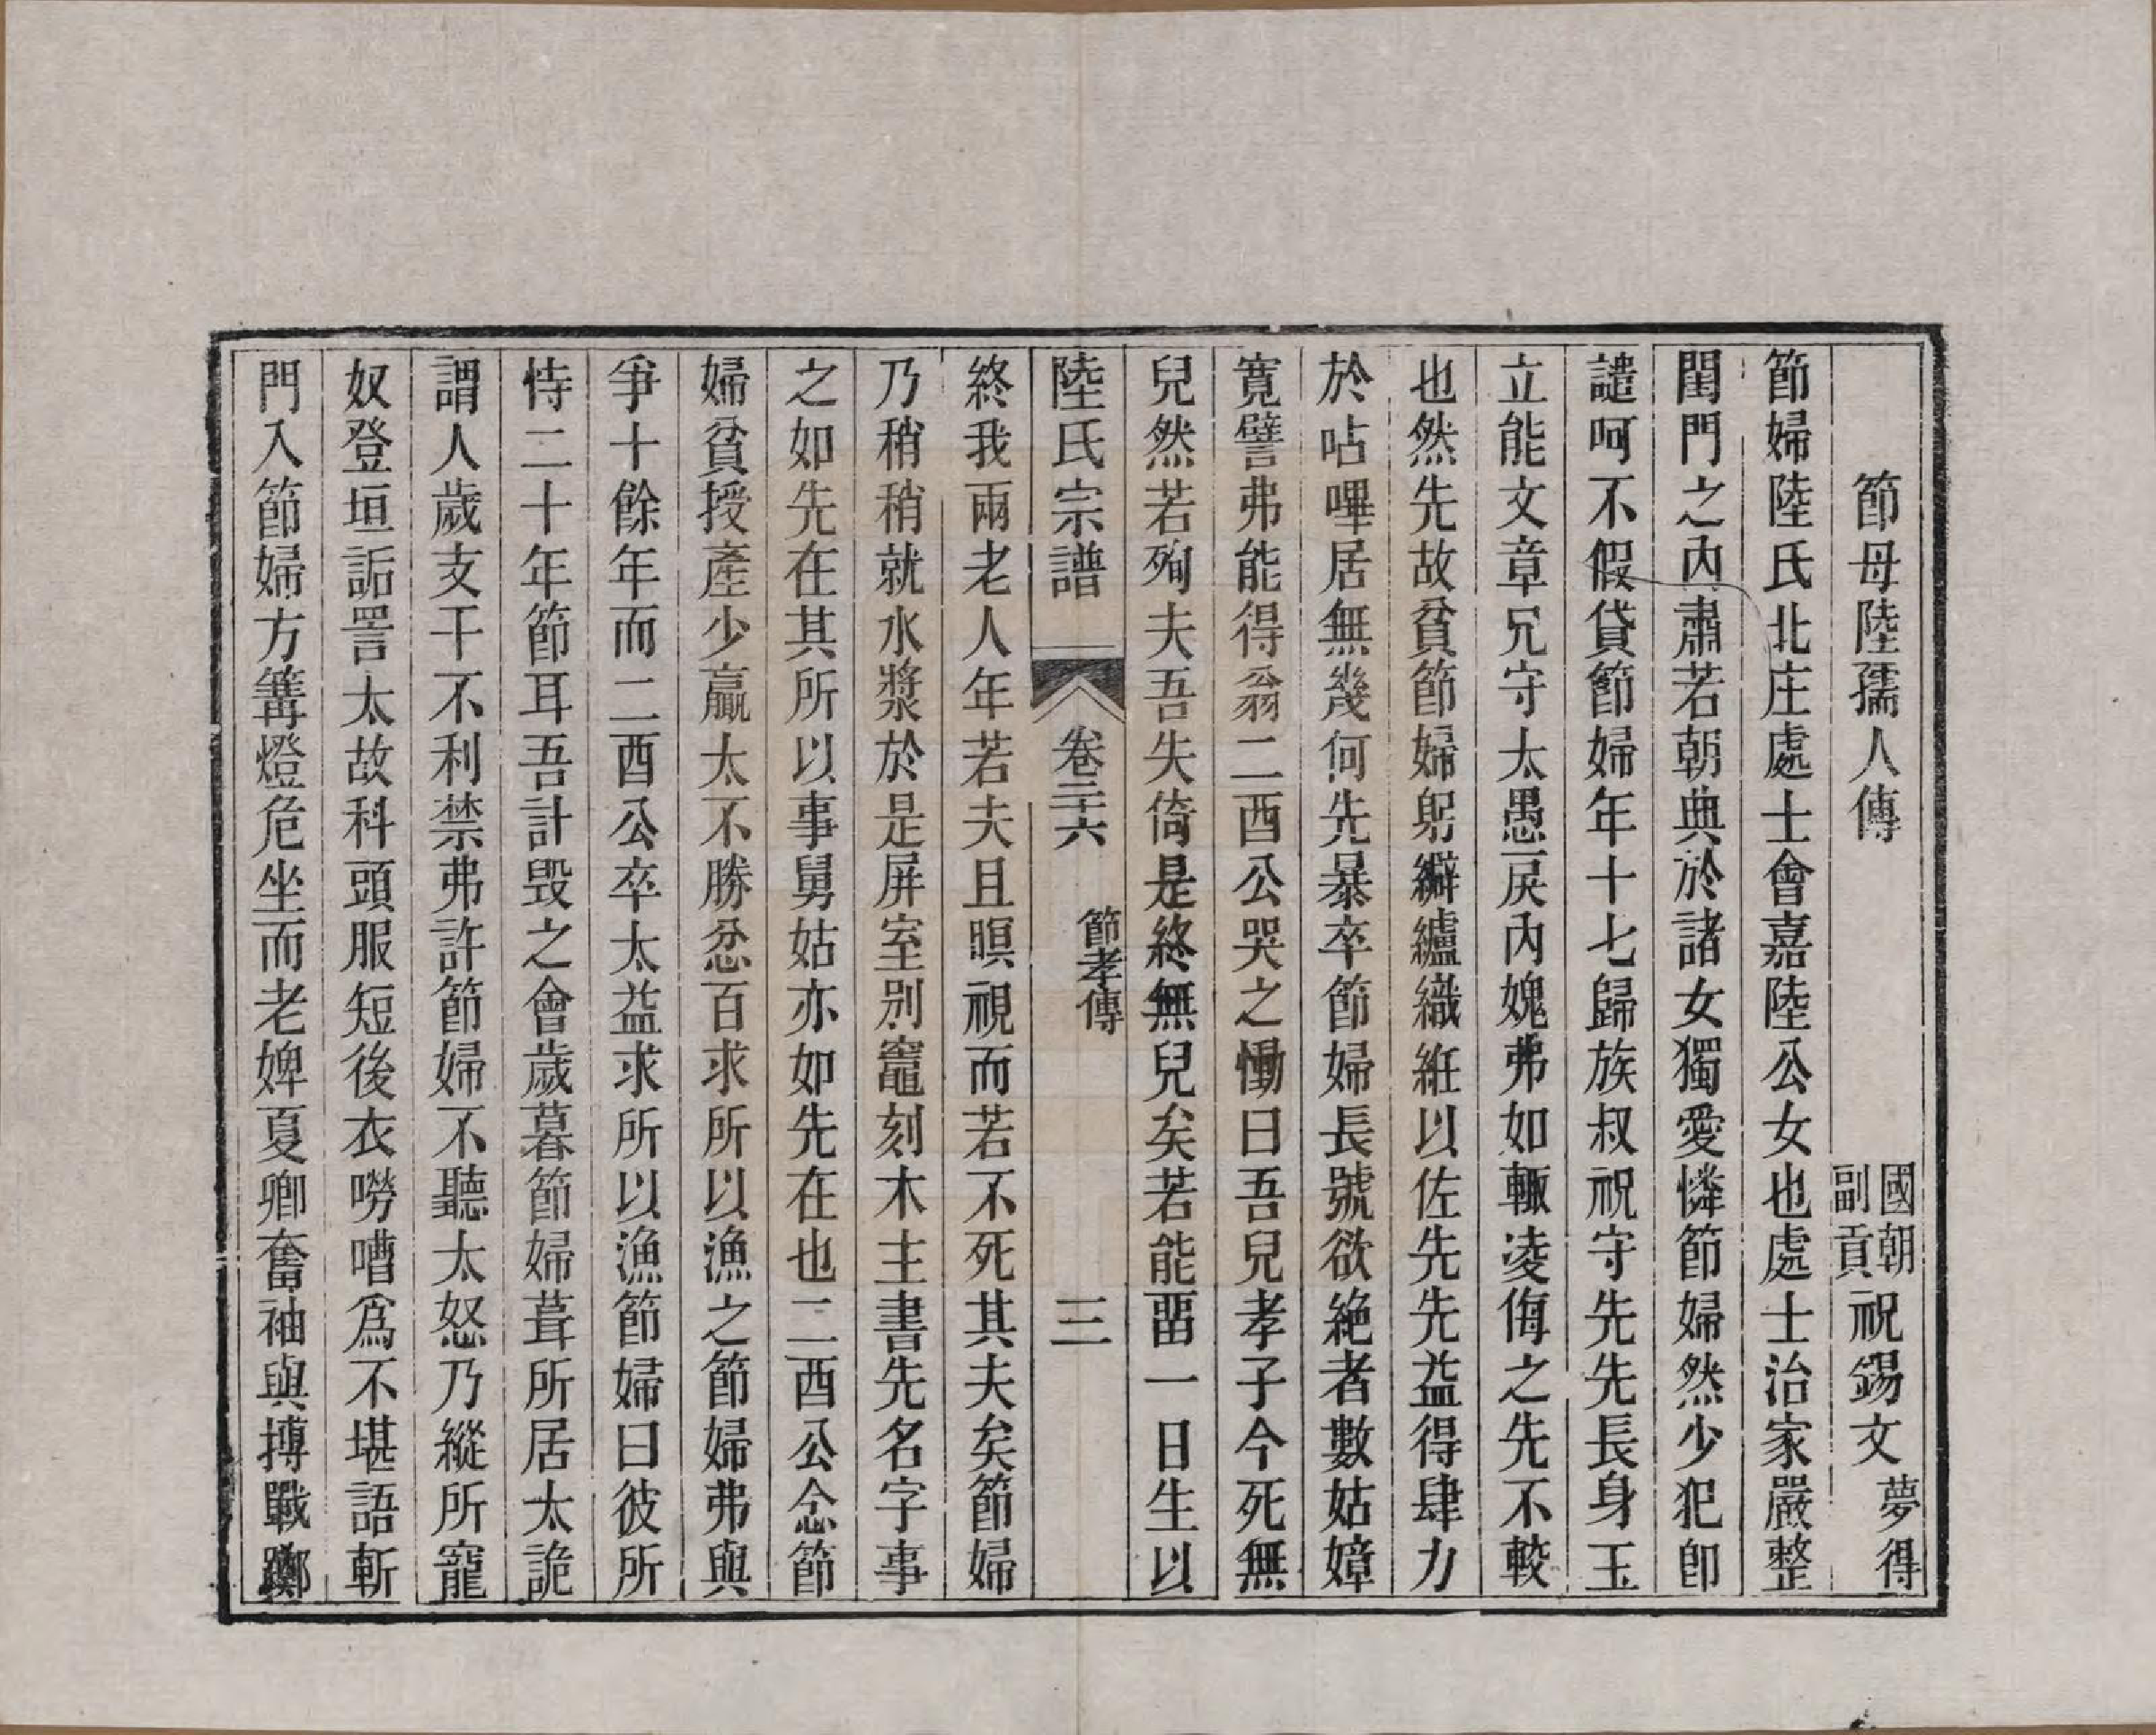 節母陸孺人傳　國朝副貢祝錫文夢得
節婦陸氏北庄處士會嘉陸公女也處士治家嚴整
閨門之內肅若朝典於諸女獨愛憐節婦然少犯卽
譴呵不假貸節婦年十七歸族叔祝守先先長身玉
立能文章兄守太愚戾內媿弗如輒凌侮之先不較
也然先故貧節婦躬纑織絍以佐先先益得肆力
於呫嗶居無幾何先暴卒節婦長號欲絶者數姑嫜
寬譬弗能得翁二酉公哭之慟曰吾兒孝子今死無
兒然若殉夫吾失倚是終無兒矣若能畱一日生以
陸氏宗譜　卷二六　節孝傳　三
終我兩老人年若夫且暝視而若不死其夫矣節婦
乃稍稍就水漿於是屏室別竈刻木主書先名字事
之如先在其所以事舅姑亦如先在也二酉公念節
婦貧授產少贏太不勝忿百求所以漁之節婦弗與
爭十餘年而二酉公卒太益求所以漁節婦曰彼所
恃二十年節耳吾計毀之會歲暮節婦葺所居太詭
謂人歲支干不利禁弗許節婦不聽太怒乃縱所寵
奴登垣詬詈太故科頭服短後衣嘮嘈爲不堪語斬
門入節婦方篝燈危坐而老婢夏卿奮袖與搏戰躑